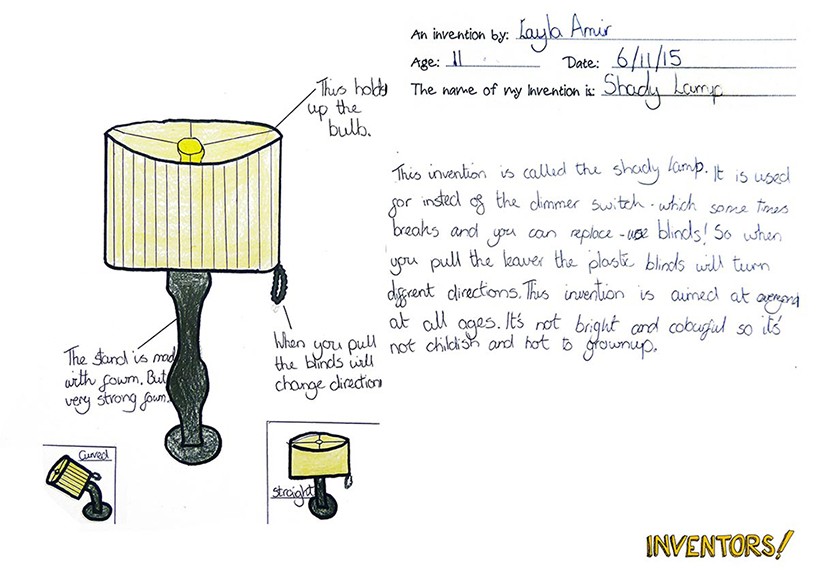 An invention by: Layla Amir
Age: 11 Date: 6/11/15
The name of my Invention is: Shady Lamp
This holds
up the
bulb.
This invention is called the shady lamp. It is used
for insted of the dimmer switch - which some times
breaks and you can replace - use blinds! So when
you pull the leaver the plastic blinds will turn
diffrent directions. This invention is aimed at everyone
at all ages. It's not bright and colourful so it's
not childish and not to grownup.
The stand is mad
with fowm. But
very strong fowm.
When you pull
the blinds will
change direction
Curved
straight
INVENTORS!